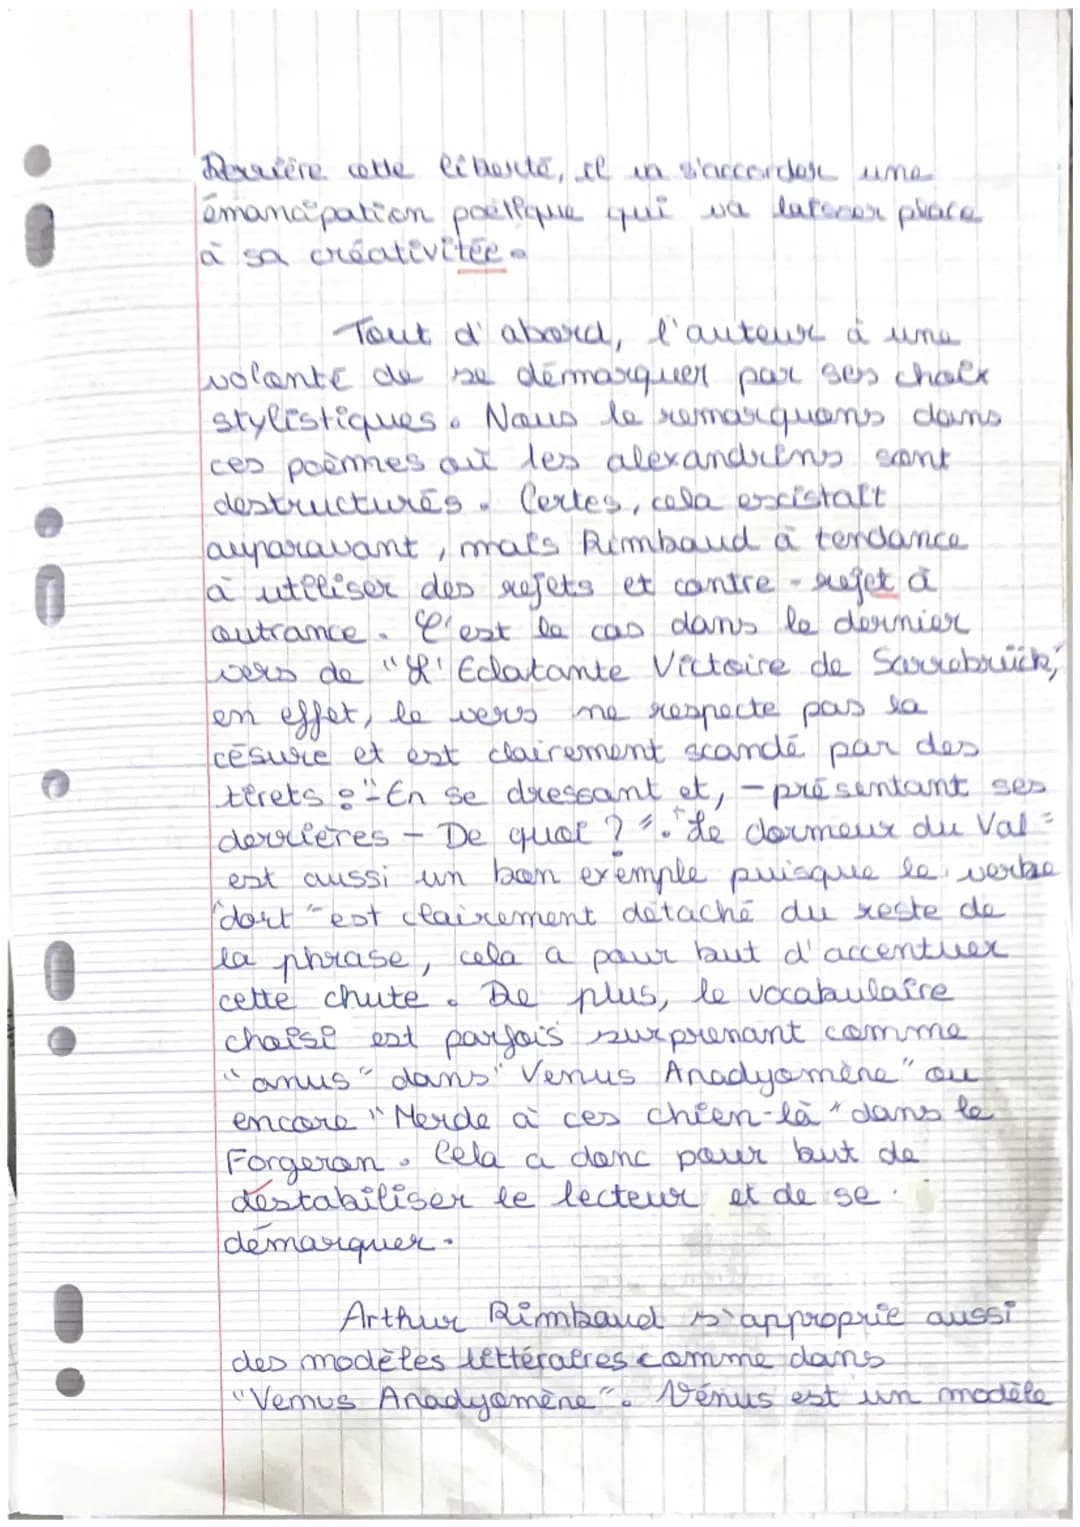 Derrière cette liberté, il va s'accorder une
émancipation poétique qui va laisser place
à sa créativitée.
Tout d'abord, l'auteur à une
volonté de se démarquer par ses choix
stylistiques. Nous le remarquons dans
ces poèmes où les alexandrins sont
destructurés. Certes, cela existait
auparavant, mais Rimbaud à tendance
à utiliser des rejets et contre-rejet à
outrance. C'est le cas dans le dernier
vers de "L'Eclatante Victoire de Sarrebrück",
en effet, le vers ne respecte pas la
césure et est clairement scandé par des
tirets : "-En se dressant et, - présentant ses
derrières - De quoi ?". "Le dormeur du Val"
est aussi un bon exemple puisque le verbe
"dort" est clairement détaché du reste de
la phrase, cela a pour but d'accentuer
cette chute. De plus, le vocabulaire
choisi est parfois surprenant comme
"anus" dans "Venus Anadyomène" ou
encore "Merde à ces chien-là" dans le
Forgeron. Cela a donc pour but de
déstabiliser le lecteur et de se
démarquer.
Arthur Rimbaud s'approprie aussi
des modèles littéraires comme dans
"Venus Anadyomène". Vénus est un modèle